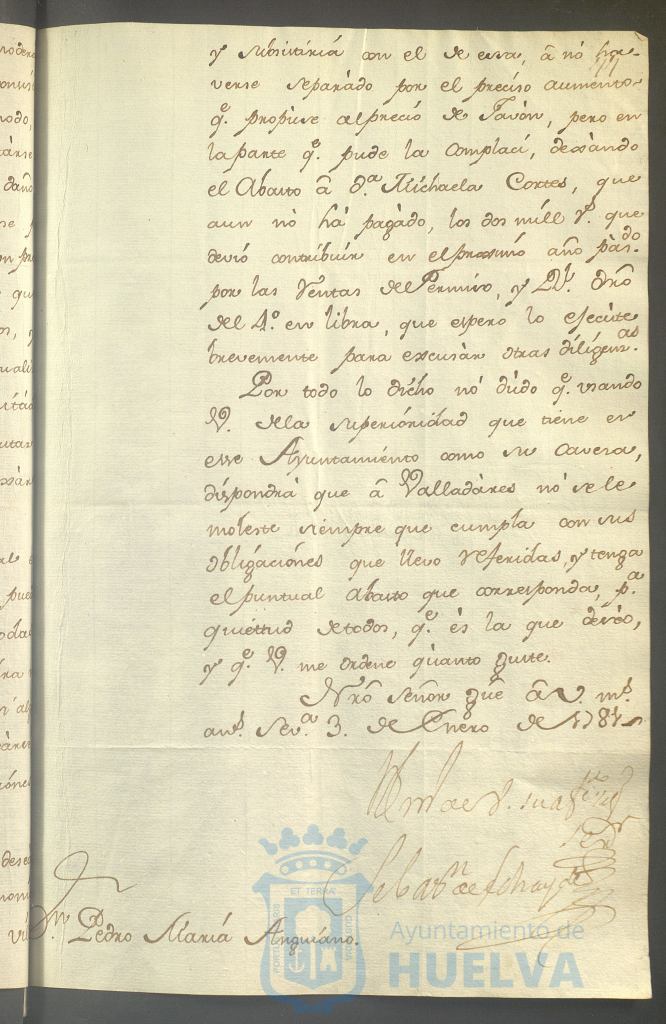 y subsistiría con el de essa, â no ha-
verse separado por el preciso aumento
q.e propúse al preció de Javòn, pero en
la parte q.e pude la complací, dexando
el Abasto â d.a Michaela Cortes, que
aun nò há pagàdo, los dos mill r.s que
devió contribuìr en el proximô año pàs.do
por las Ventas del Permiso, y Rl. dr̃ô
del 4.o en libra, que esperò lo ejecùte
brevemente para excusàr otras diligenz.as
Por todo lo dicho nó dúdo q.e usando
V. de la superiòridad que tiene en
esse Ayuntamiento como su cavera,
dispondrà que â Valladàres no se le
moleste siempre que cumpla con sus
obligaciónes que llevo referidas, y tenga
el puntual Abasto que corresponda, p.a
quiettud de todos, q.e ès la que desèo,
y q.e V. me ordene quanto guste.
Nr̃ô Señor gũe â V. m.s
an.s Sev.a 3. de Enero de 1781
Blm de V. su
Sebas.n de
S.n D. Pedro Mariá Anguiáno.
PORTUS MARIS
ET TERRAE
CUSTODIA
Ayuntamiento de
HUELVA